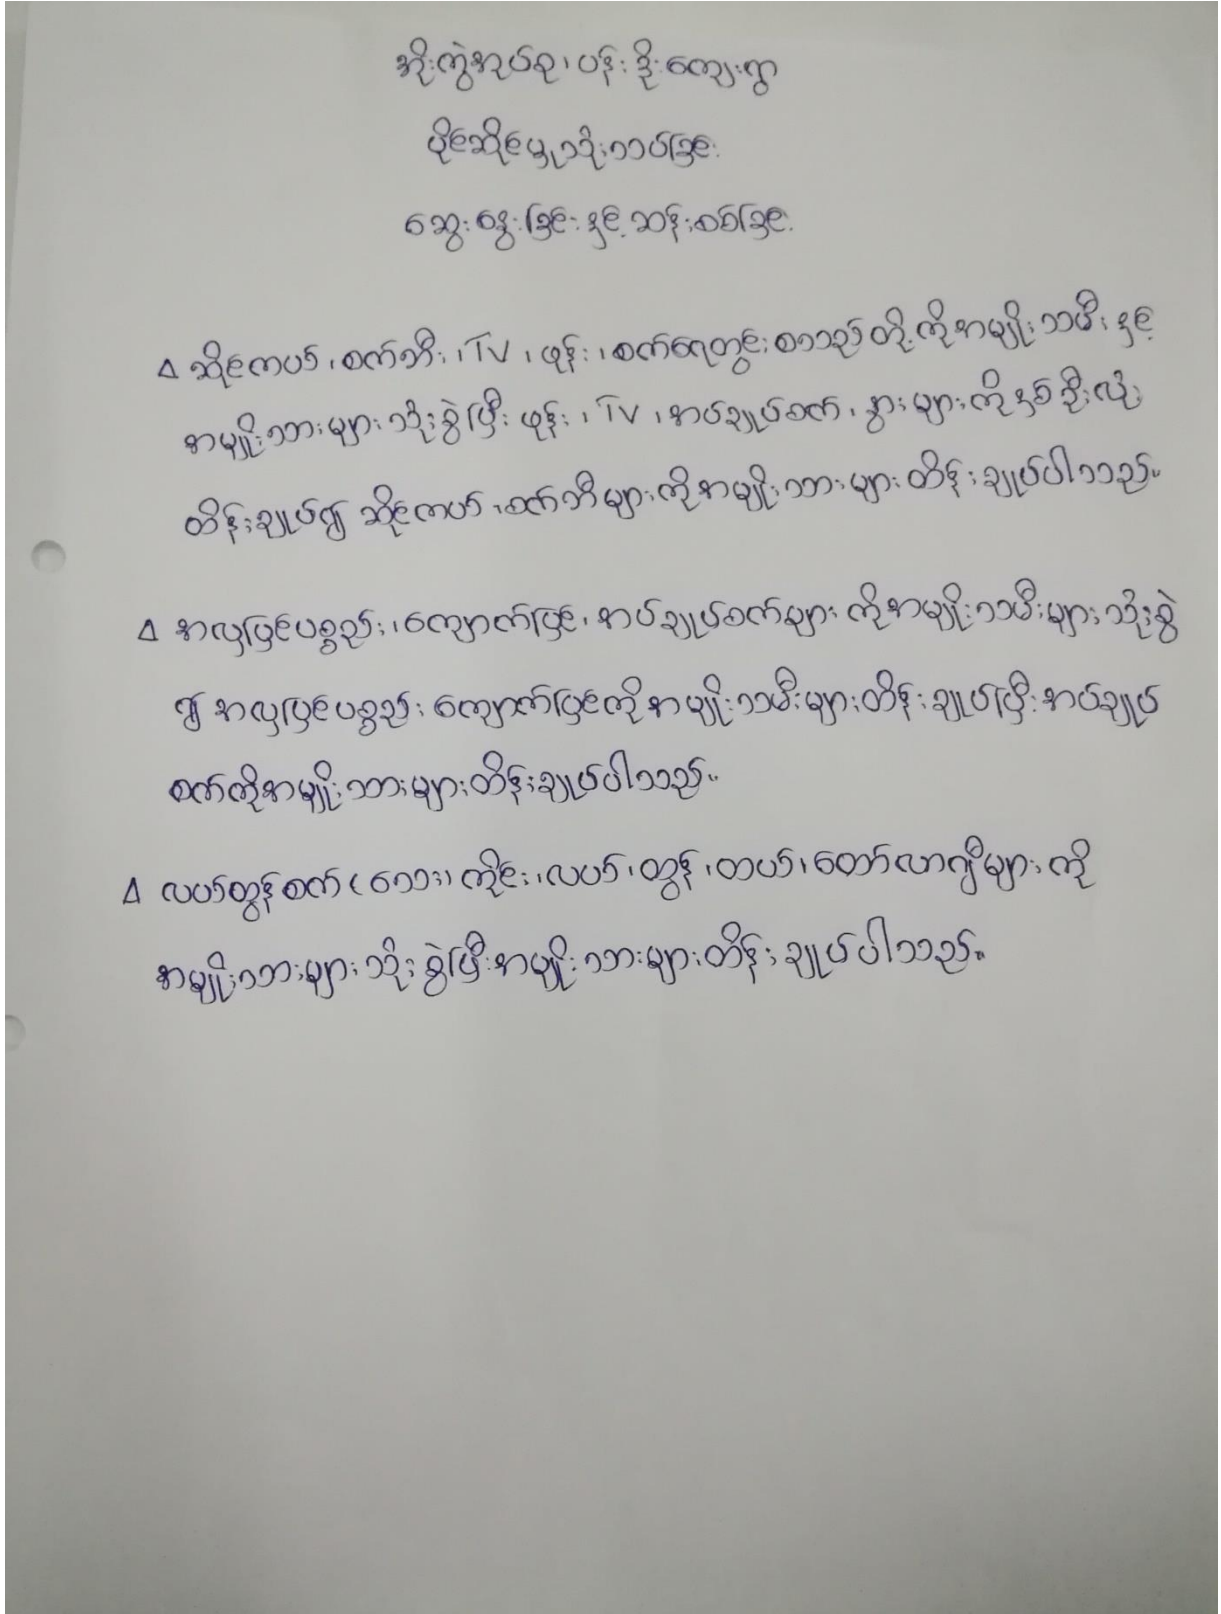 အိုးကွဲအုပ်စု၊ ပန်းဒိုးကျေးရွာ
ပိုင်ဆိုင်မှုသုံးသပ်ခြင်း
ဆွေးနွေးခြင်းနှင့်ဆန်းစစ်ခြင်း
Δ ဆိုင်ကယ်၊ စက်ဘီး၊ TV ၊ ဖုန်း၊ စက်ရေတွင်း စသည်တို့ကိုအမျိုးသမီးနှင့်
အမျိုးသားများ သုံးစွဲပြီး ဖုန်း၊ TV ၊ အပ်ချုပ်စက်၊ နွားများကိုနှစ်ဦးလုံး
ထိန်းချုပ်၍ ဆိုင်ကယ်၊ စက်ဘီးများကိုအမျိုးသားများ ထိန်းချုပ်ပါသည်။
Δ အလှပြင်ပစ္စည်း၊ ကျောက်ပြင်၊ အပ်ချုပ်စက်များ ကိုအမျိုးသမီးများ သုံးစွဲ
၍ အလှပြင်ပစ္စည်း ကျောက်ပြင်ကိုအမျိုးသမီးများထိန်းချုပ်ပြီး အပ်ချုပ်
စက်ကိုအမျိုးသားများထိန်းချုပ်ပါသည်။
Δ လယ်ထွန်စက် (သေး) ကိုင်း၊ လယ်၊ ထွန်၊ ထယ်၊ ထော်လာဂျီများ ကို
အမျိုးသားများ သုံးစွဲပြီးအမျိုးသားများထိန်းချုပ်ပါသည်။